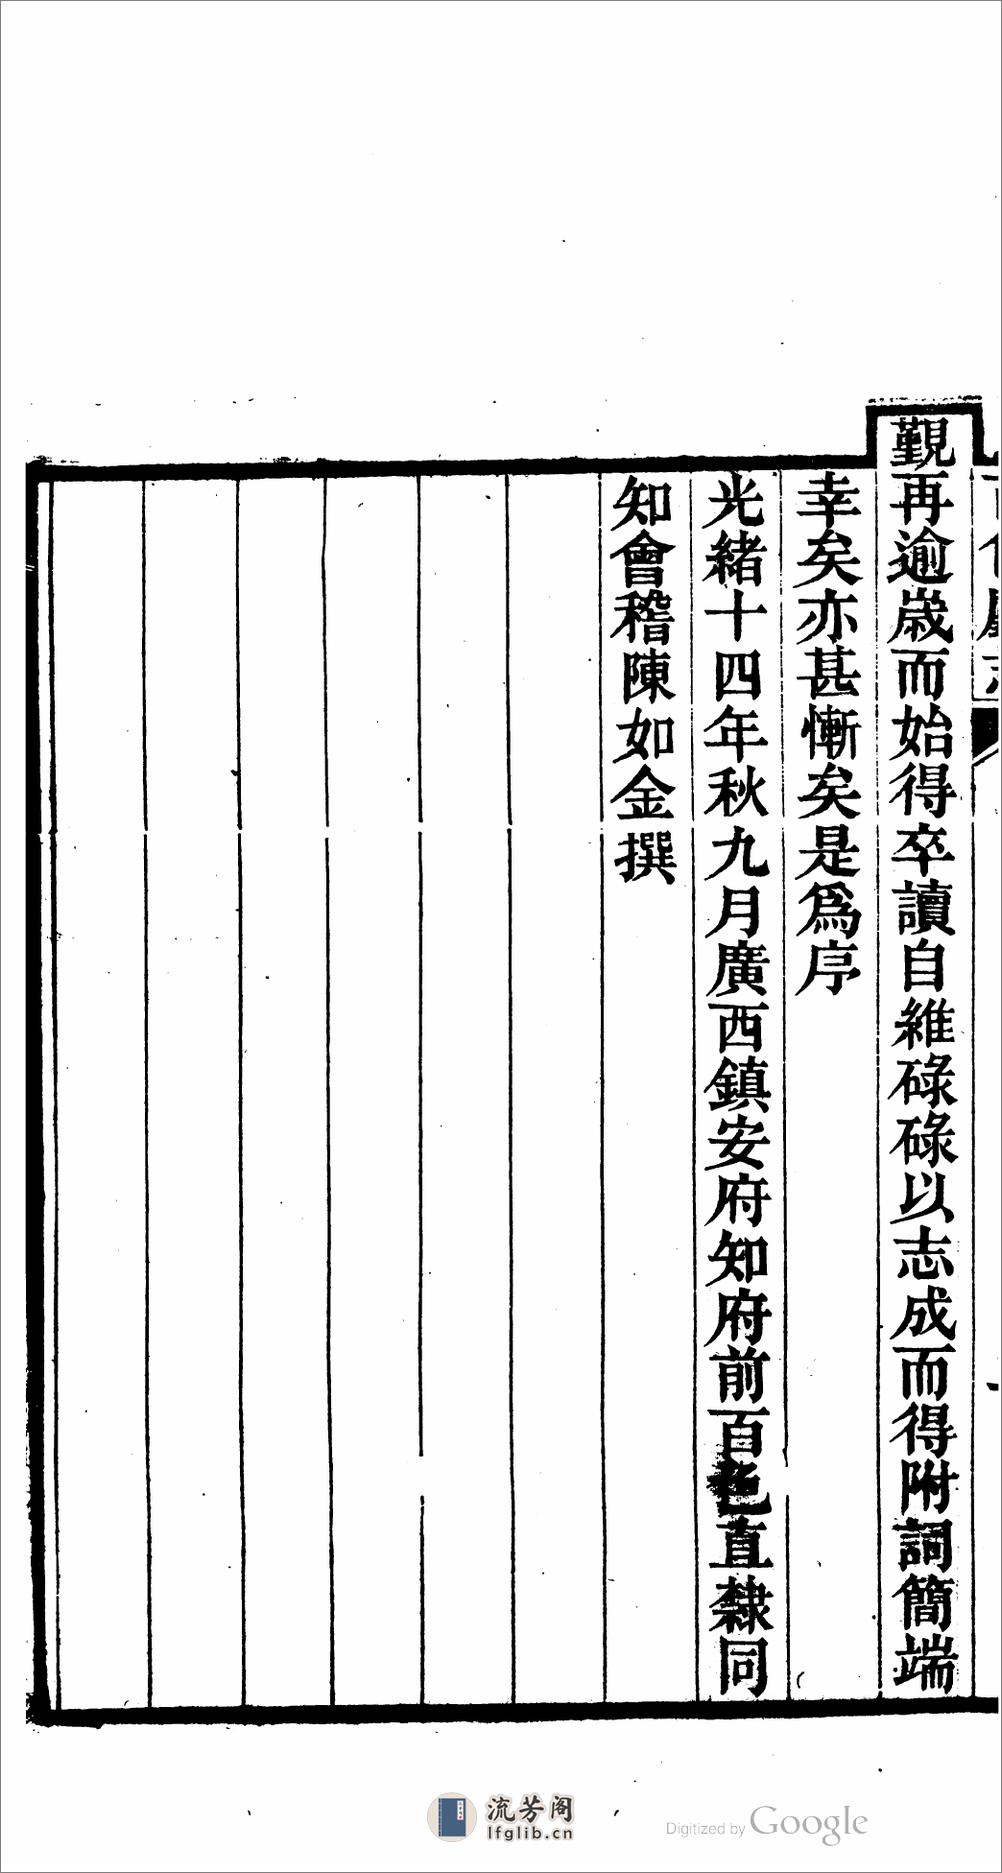 覲再逾嵗而始得卒讀自維碌碌以志成而得附詞簡端
幸矣亦甚慚矣是爲序
光緒十四年秋九月廣西鎮安府知府前百色直隸同
知會稽陳如金撰
流芳阁
lfglib.cn
Digitized by Google